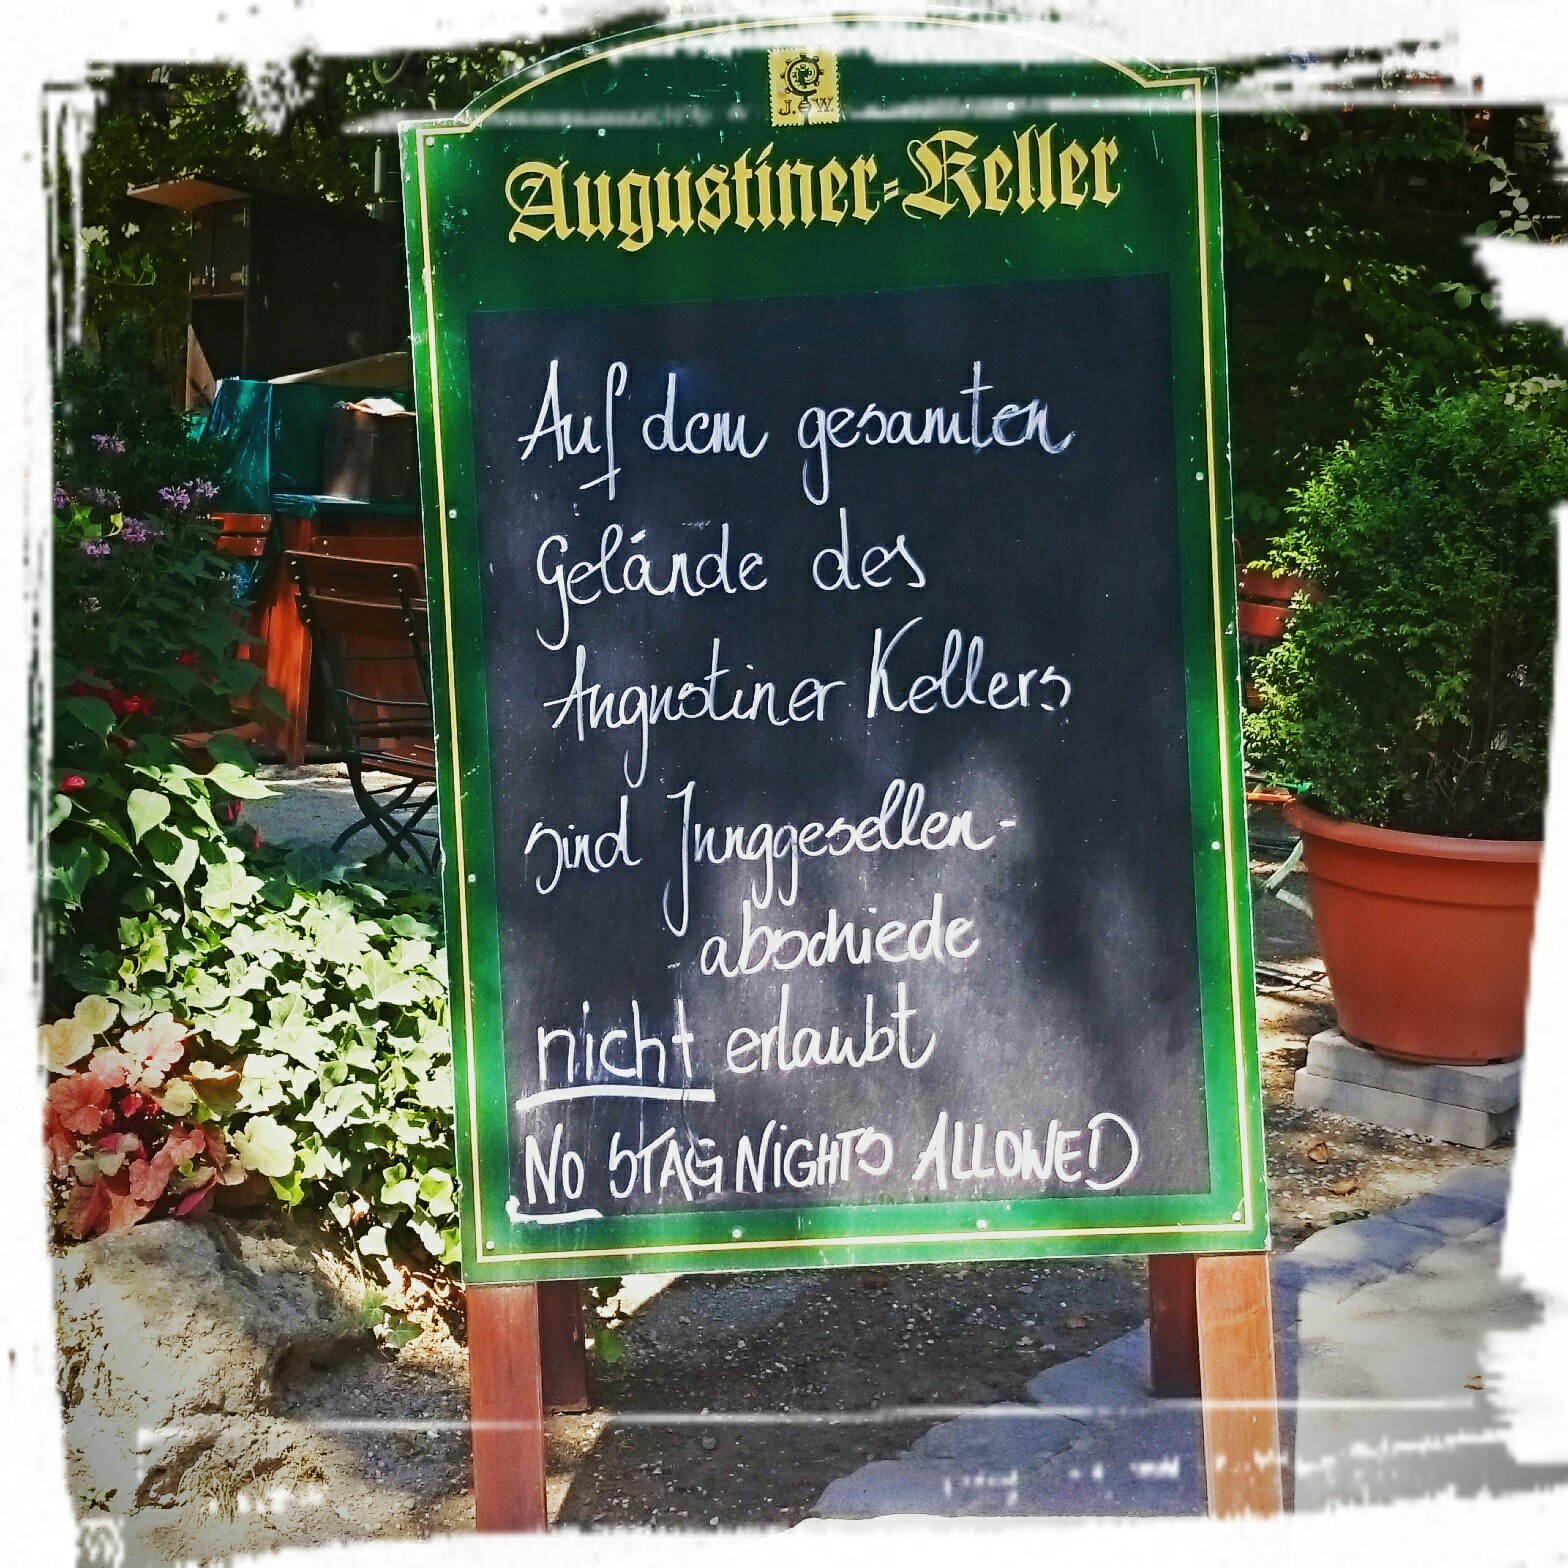 J. & W.
Augustiner-Keller
Auf dem gesamten
Gelände des
Augustiner Kellers
sind Junggesellen-
abschiede
nicht erlaubt
NO STAG NIGHTS ALLOWED